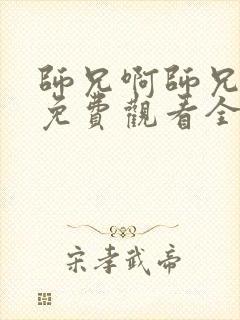 師兄啊師兄
免費觀看全
宋孝武帝